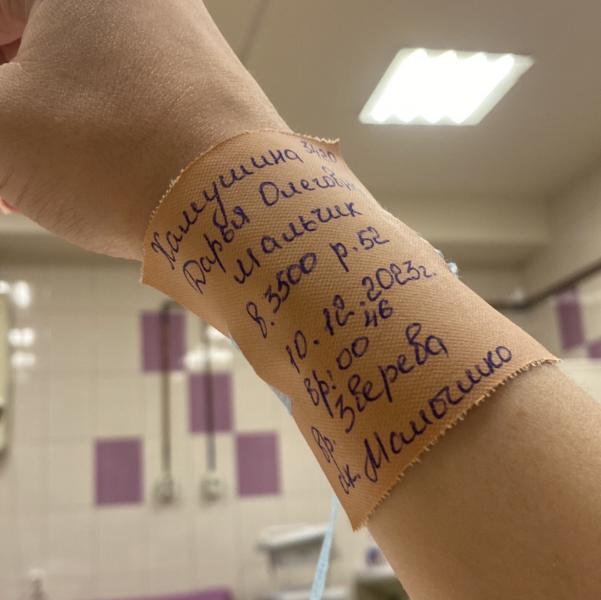 Хамушина 3420
Дарья Олеговн
Мальчик
в.3500 р.52
10.12.2023г.
вр: 00 46
Вр. Зверева
ак. Малышко